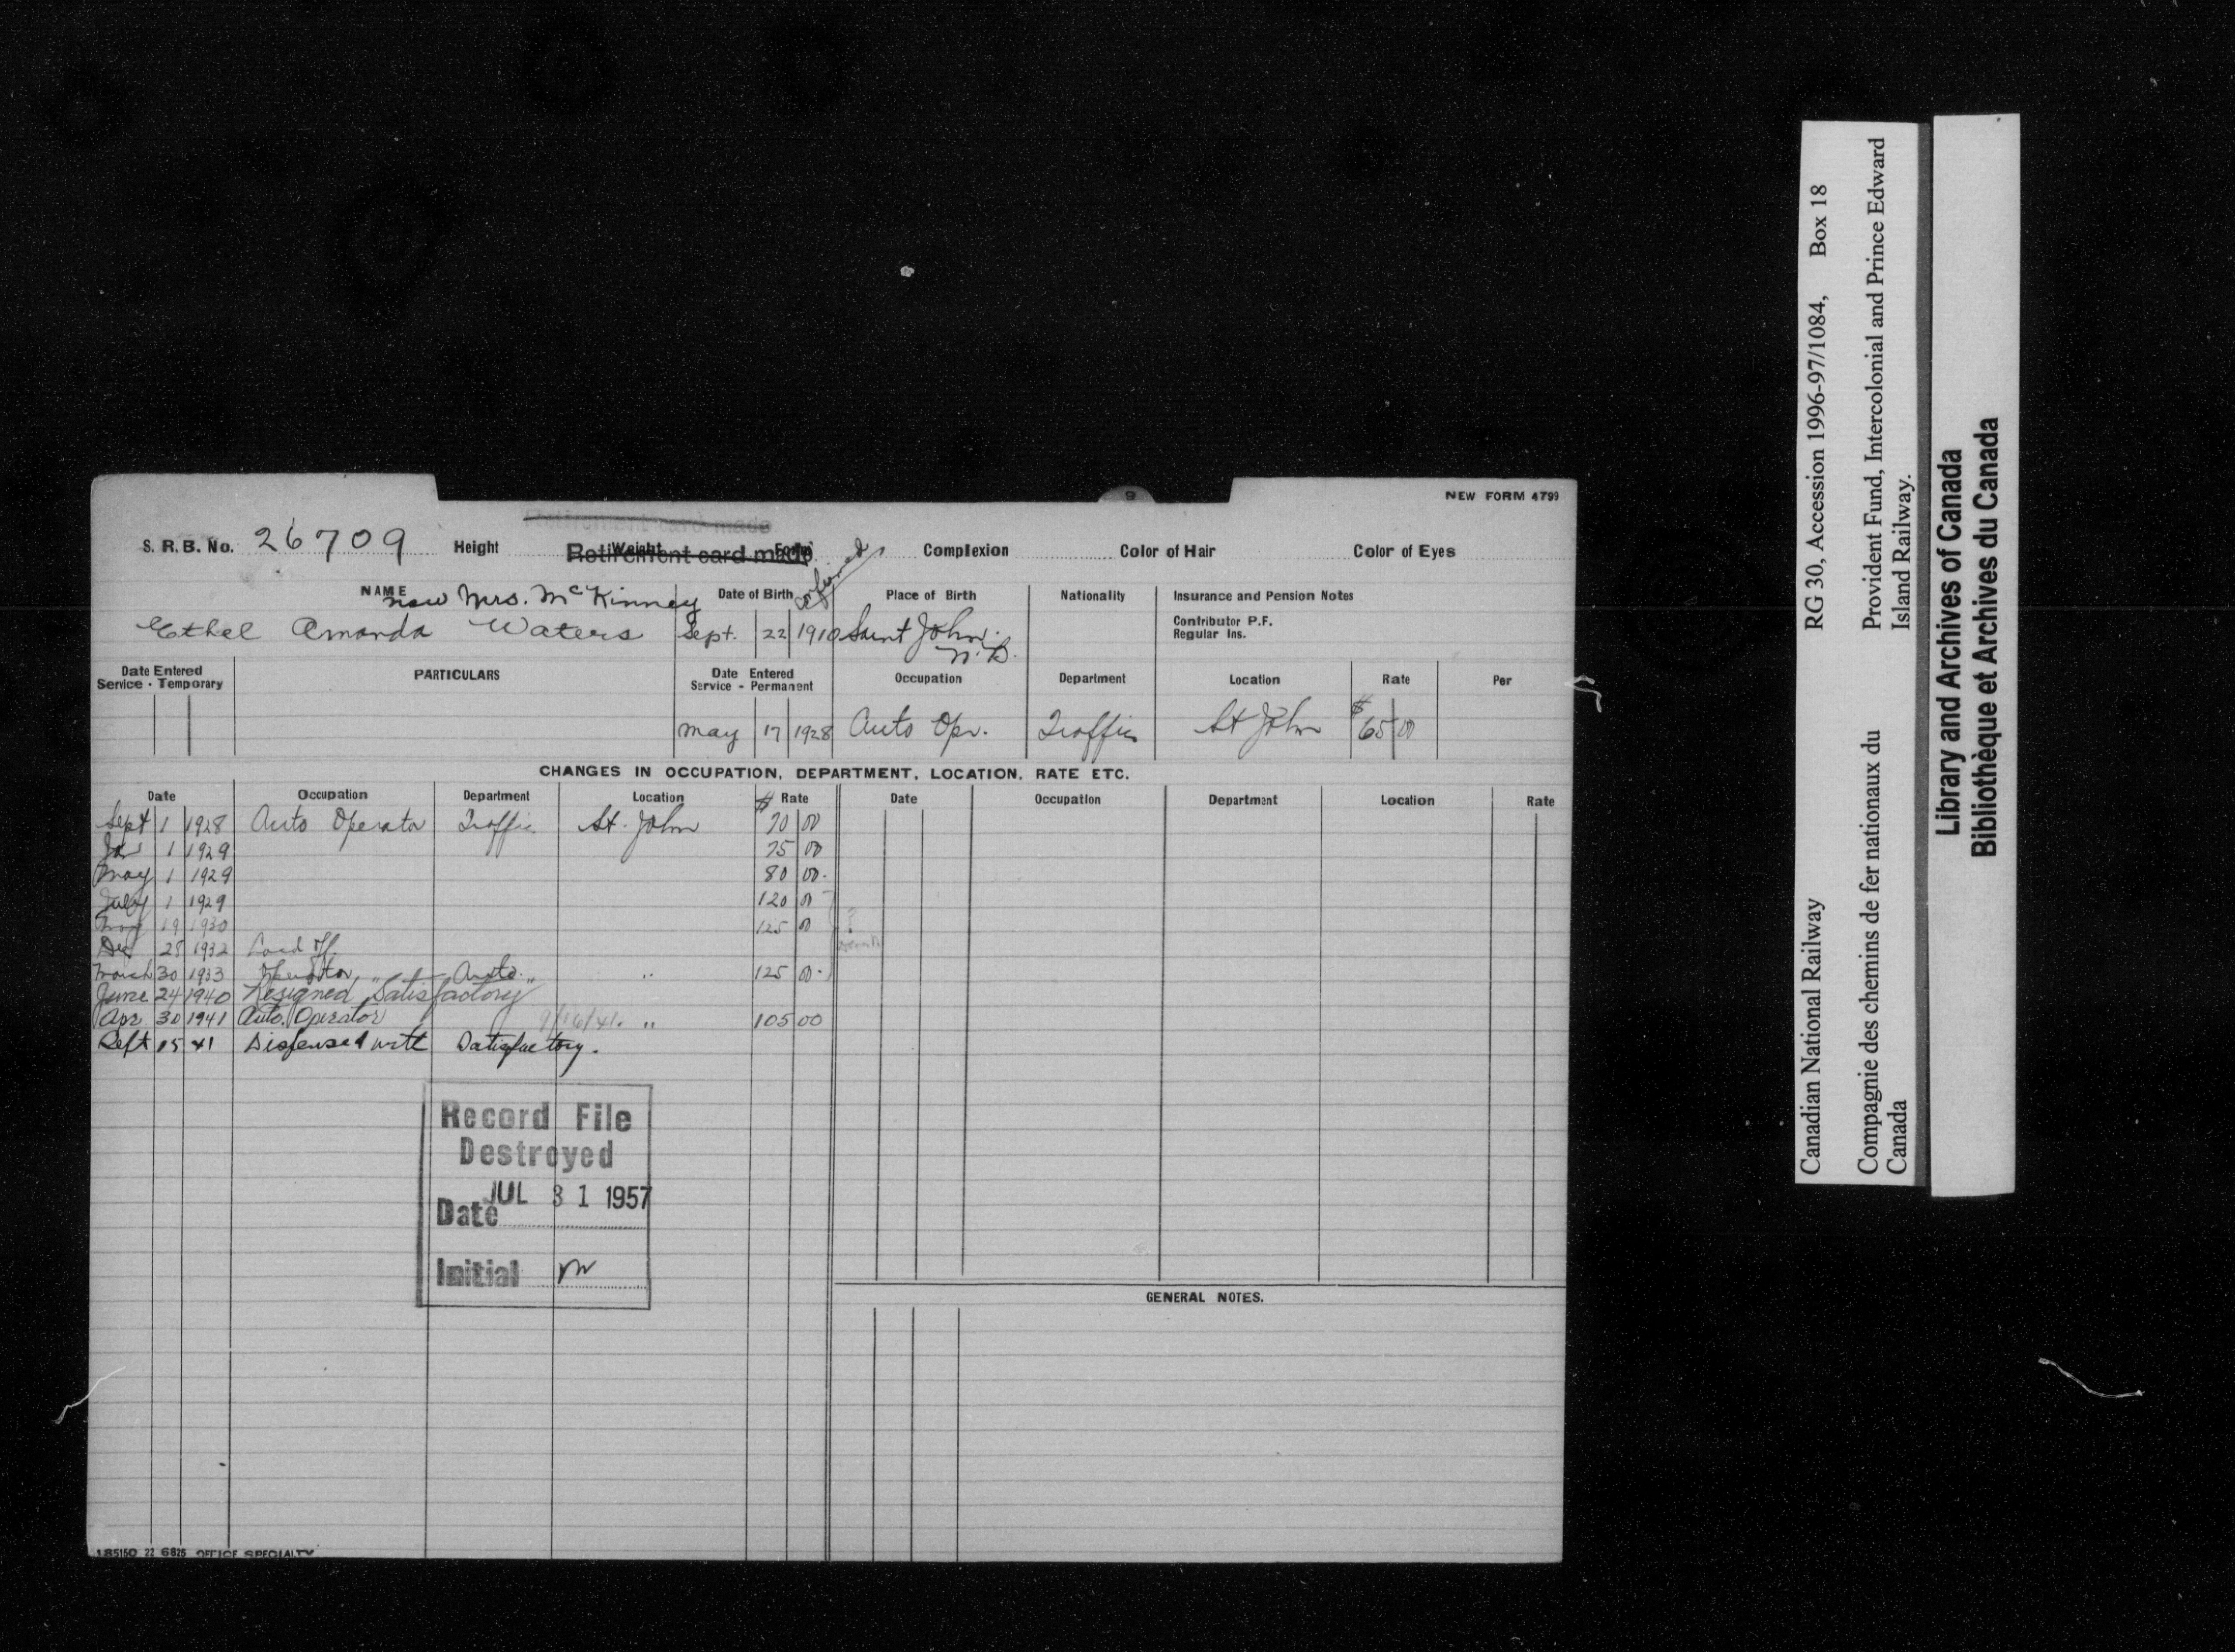 NEW FORM 4799
Retirement card made
S. R. B. No. 26709 Height Weight Form Complexion Color of Hair Color of Eyes
Retirement card made
NAME now Mrs. McKinney Date of Birth Place of Birth Nationality Insurance and Pension Notes
Contributor P.F.
Regular Ins.
Ethel Amanda Waters Sept. 22 1910 Saint John.
N.B.
Date Entered Service - Temporary PARTICULARS Date Entered Service - Permanent Occupation Department Location Rate Per
May 17 1928 Auto Opr. Traffic St John $ 65 00
CHANGES IN OCCUPATION, DEPARTMENT, LOCATION, RATE ETC.
Date Occupation Department Location $ Rate Date Occupation Department Location Rate
Sept 1 1928 Auto Operator Traffic St. John 70 00
Jan 1 1929 75 00
May 1 1929 80 00.
July 1 1929 120 00
19 1930 125 00 ?
Dec 25 1932 Laid off.
March 30 1933 Operator Auto. " 125 00.
June 24 1940 Resigned "Satisfactory"
Apr 30 1941 Auto. Operator 9/16/41. " 105 00
Sept 15 41 Dispensed with Satisfactory.
Record File
Destroyed
Date JUL 31 1957
Initial
GENERAL NOTES.
185150 22 6825 OFFICE SPECIALTY
Canadian National Railway RG 30, Accession 1996-97/1084, Box 18
Compagnie des chemins de fer nationaux du Provident Fund, Intercolonial and Prince Edward
Canada Island Railway.
Library and Archives of Canada
Bibliothèque et Archives du Canada